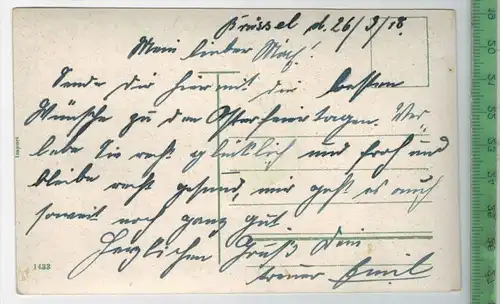 Brüssel d. 26/3/18.
Mein lieber
Sende dir hiermit die besten
Wünsche zu den Osterfeiertagen. Ver-
lebe Sie recht glücklich und froh und
bleibe recht gesund, mir geht es auch
soweit noch ganz gut
Herzlichen Gruß Dein
treuer Emil
1433